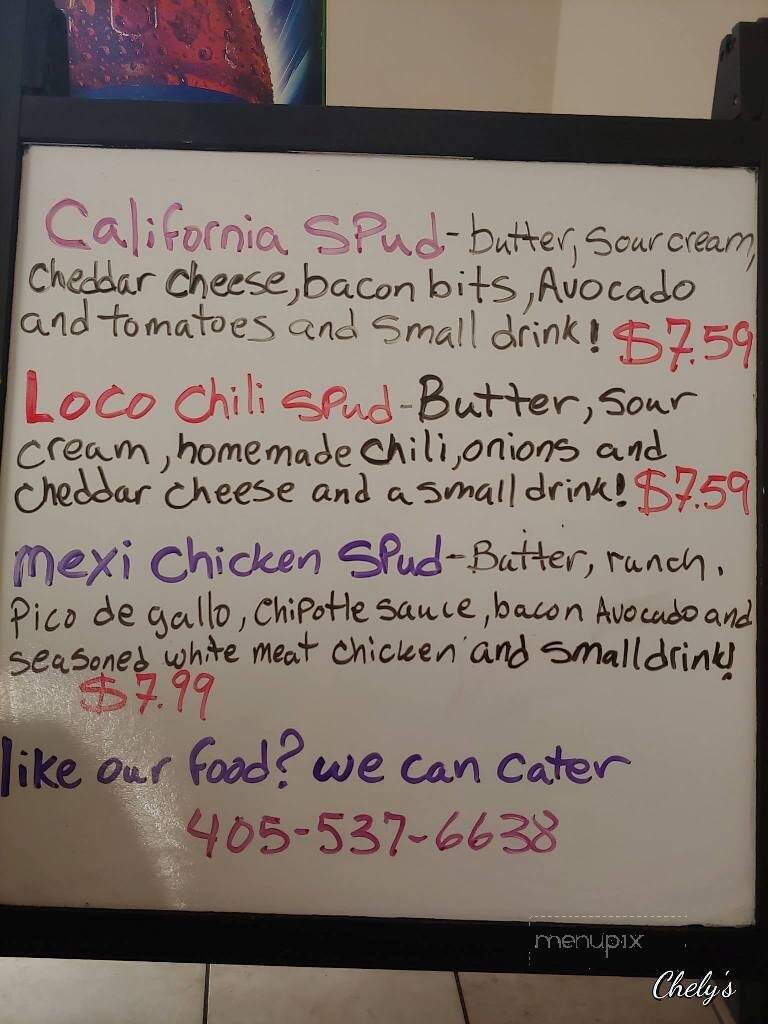 California Spud - butter, sour cream,
cheddar cheese, bacon bits, Avocado
and tomatoes and small drink! $7.59
Loco Chili Spud - Butter, sour
cream, homemade chili, onions and
cheddar cheese and a small drink! $7.59
mexi Chicken Spud - Butter, ranch.
Pico de gallo, Chipotle sauce, bacon Avocado and
seasoned white meat chicken and small drink!
$7.99
like our food? we can cater
405-537-6638
menupix
Chely's